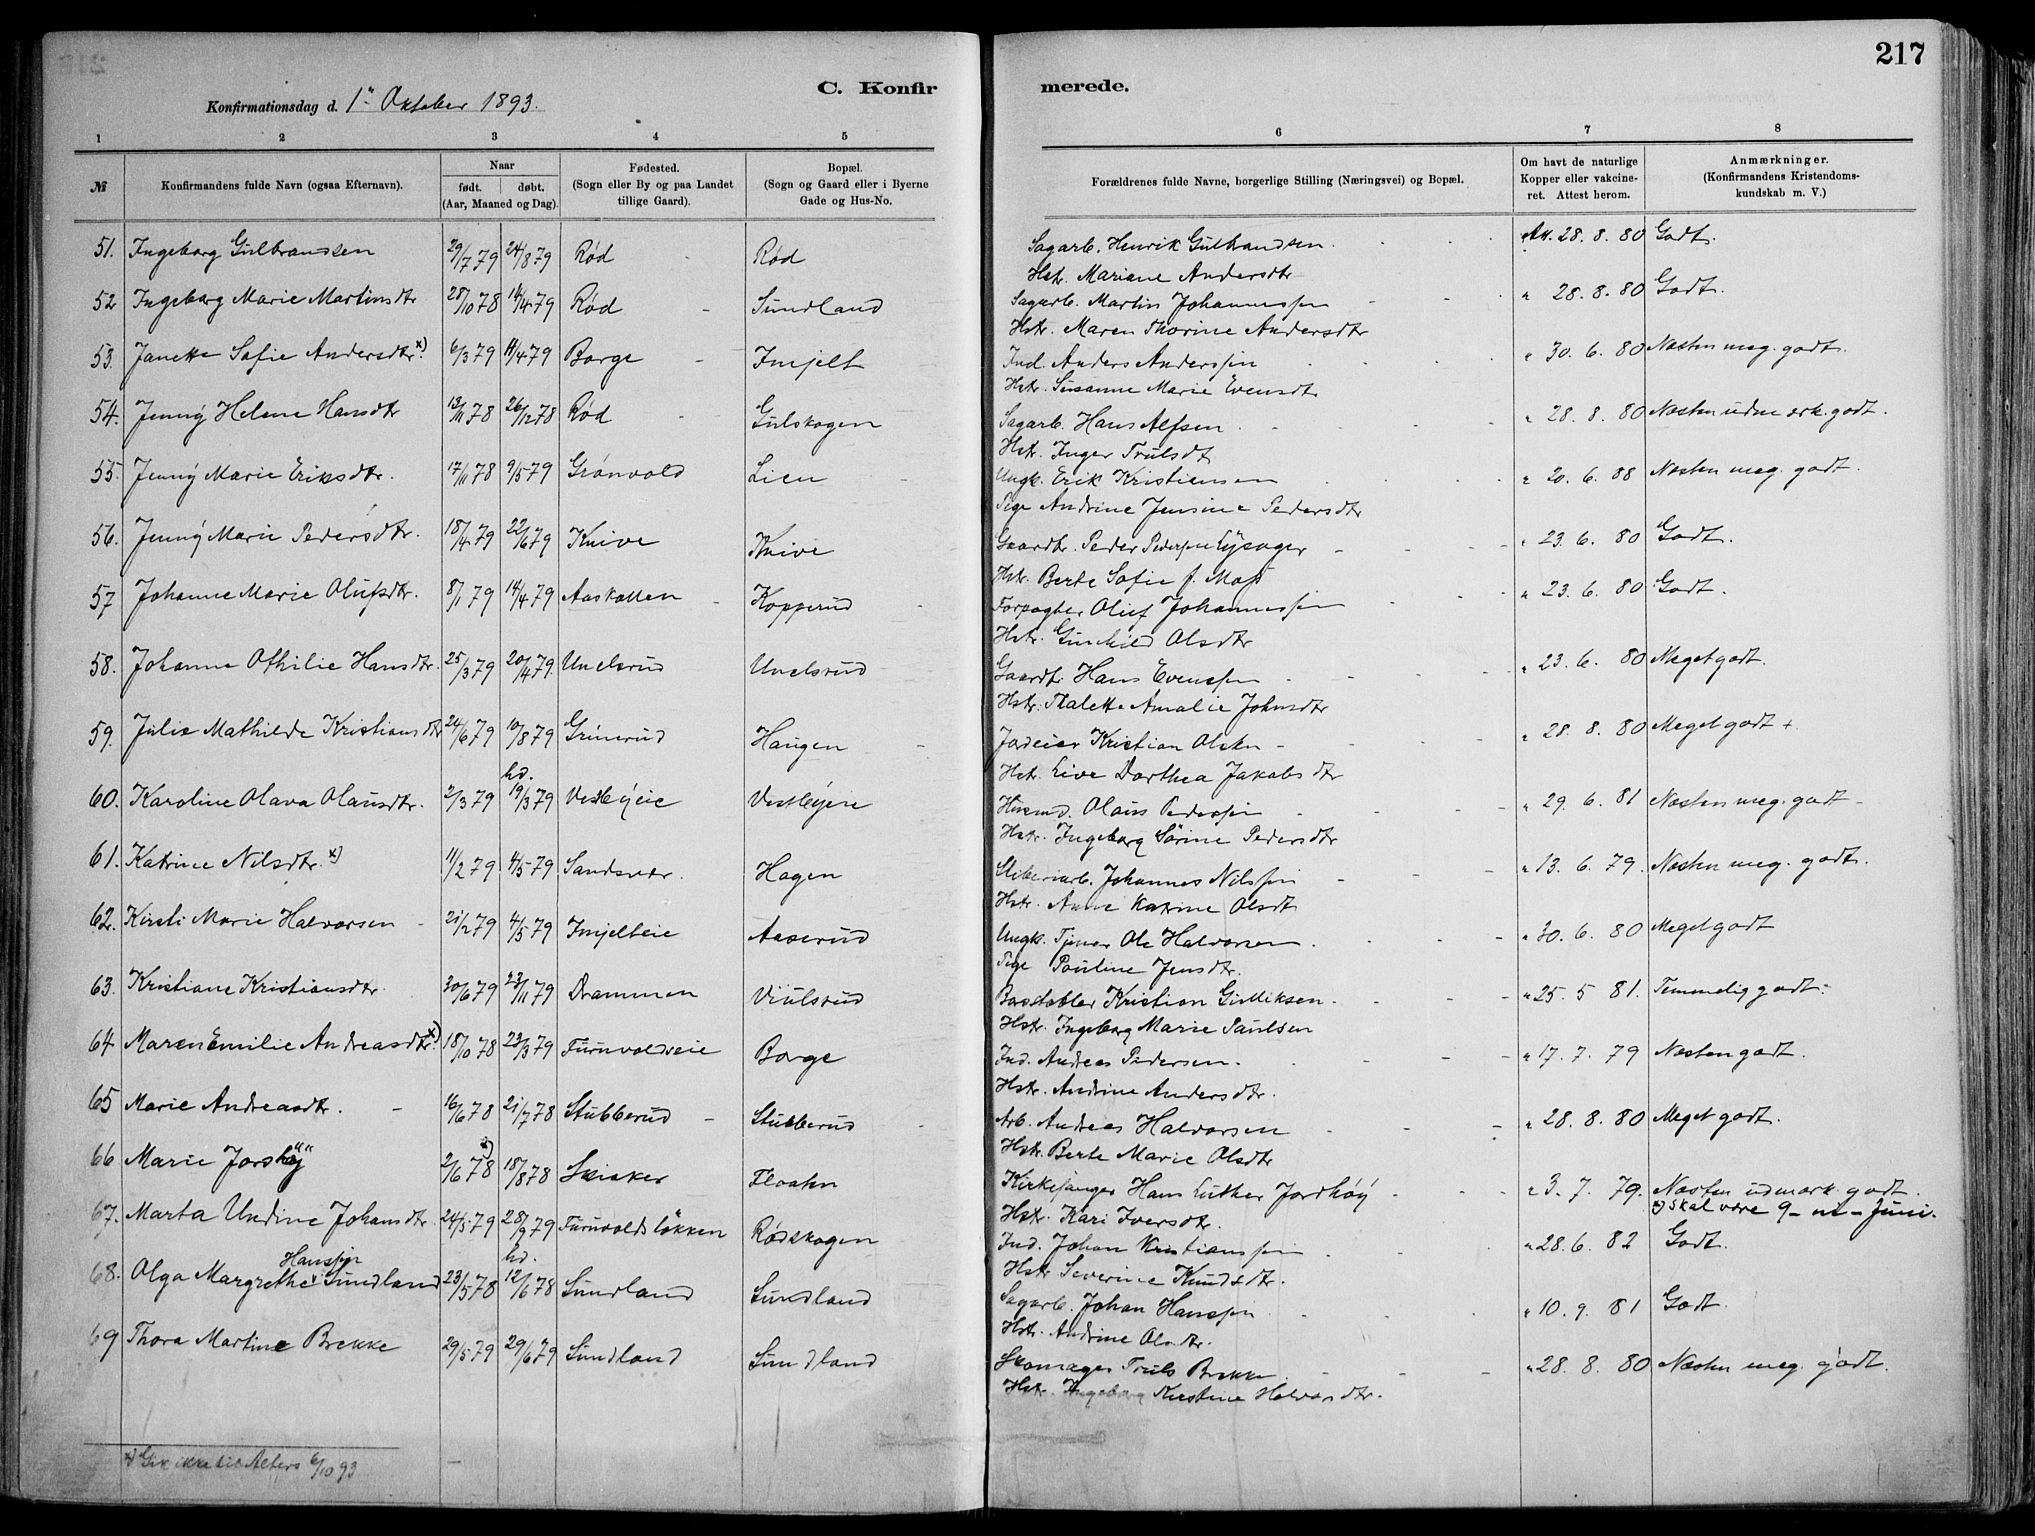 217
C. Konfirmerede.
Konfirmationsdag d. 1ᵗᵉ Oktober 1893.
1 2 3 4 5 6 7 8
№
Konfirmandens fulde Navn (ogsaa Efternavn).
Naar
født. døbt.
(Aar, Maaned og Dag).
Fødested.
(Sogn eller By og paa Landet
tillige Gaard).
Bopæl.
(Sogn og Gaard eller i Byerne
Gade og Hus-No.
Forældrenes fulde Navne, borgerlige Stilling (Næringsvei) og Bopæl.
Om havt de naturlige
Kopper eller vakcine-
ret. Attest herom.
Anmærkninger.
(Konfirmandens Kristendoms-
kundskab m. V.)
51. Ingeborg Gulbransen 29/7 79 24/8 79 Rød Rød Sagarb. Henrik Gulbrandsen Att. 28. 8. 80 Godt.
Hstr. Mariane Andersdtr
52 Ingeborg Marie Martinsdtr 28/10 78 14/4 79 Rød Sundland Sagarb. Martin Johannessen " 28. 8. 80 Godt.
Hstr. Maren Thorine Andersdtr
53. Janette Sofie Andersdtr. x) 6/3 79 14/4 79 Borge Imjelt Ind. Anders Anderssen " 30. 6. 80 Næsten meg. godt.
Hstr. Susanne Marie Evensdtr
54. Jenny Helene Hansdtr 13/11 78 26/12 78 Rød Gulskogen Sagarb. Hans Alfsen " 28. 8. 80 Næsten udmærk. godt.
Hstr. Inger Trulsdtr
55. Jenny Marie Eriksdtr. 17/11 78 9/5 79 Grønvold Lien Ungk. Erik Kristiansen " 20. 6. 88 Næsten meg. godt.
Pige Andrine Jensine Pedersdtr
56. Jenny Marie Pedersdtr. 18/4 79 22/6 79 Knive Knive Gaardbr. Peder Pedersen Lysager " 23. 6. 80 Godt.
Hstr. Berte Sofie f. Moss
57 Johanne Marie Olufsdtr. 8/1 79 14/4 79 Aaskollen Kopperud Forpagter Oluf Johannessen " 23. 6. 80 Godt.
Hstr. Gunhild Olsdtr
58. Johanne Othilie Hansdtr. 25/3 79 20/4 79 Unelsrud Unelsrud Gaardbr. Hans Evenssen " 23. 6. 80 Meget godt.
Hstr. Thalette Amalie Johnsdtr
59. Julie Mathilde Kristiansdtr 24/6 79 10/8 79 Grinerud Haugen Jordeier Kristian Olsen " 28. 8. 80 Meget godt +
Hstr. Live Dorthea Jakobsdtr
60. Karoline Olava Olausdtr. 2/3 79 hd. 19/3 79 Vestbyeie Vestbyeie Husmd. Olaus Pederssen " 29. 6. 81 Næsten meg. godt
Hstr. Ingeborg Sørine Pedersdtr
61. Katrine Nilsdtr. x) 11/2 79 4/5 79 Sandsvær. Hagen Sliberiarb. Johannes Nilssen " 13. 6. 79. Næsten meg. godt.
Hstr. Anne Katrine Olsdtr
62. Kirsti Marie Halvorsen 21/2 79 4/5 79 Imjelteie Aaserud Ungk. Tjener Ole Halvorsen " 30. 6. 80 Meget godt
Pige Pauline Jensdtr.
63. Kristiane Kristiansdtr. 30/6 79 23/11 79 Drammen Viulsrud Kristian " 25. 5 81. Temmelig godt.
Hstr. Ingeborg Marie Paulsen
64 Maren Emilie Andreasdtr. x) 18/10 78 23/3 79 Furuvoldseie Borge Ind. Andreas Pedersen. " 17. 7. 79 Næsten godt.
Hstr. Andrine Andersdtr.
65 Marie Andreasdtr. 16/6 78 21/7 78 Stubberud Stubberud Arb. Andreas Halvorsen " 28. 8. 80 Meget godt.
Hstr. Berte Marie Olsdtr
66 Marie Jorshøj 2/6 78 x) 18/8 78 Skiaker Floahn Kirkesanger Hans Luther Jordhøy " 3. 7. 79. Næsten udmærk. godt.
Hstr. Kari Iversdtr. x) skal være 9 - ni - Juni.
67. Marta Undine Johansdtr. 24/5 79 28/9 79 Furuvoldsløkken Rødskogen Ind. Johan Kristianssen " 28. 6. 82 Godt.
Hstr. Severine Knudsdtr.
68. Olga Margrethe Hanssen Sundland 23/5 78 hd. 12/6 78 Sundland Sundland Sagarb. Johan Hanssen " 10. 9. 81 Godt.
Hstr. Andrine Olsdtr.
69 Thora Martine Brekke 29/5 79 29/6 79 Sundland Sundland Skomager Truls Brekke " 28. 8. 80 Næsten meg. godt.
Hstr. Ingeborg Kirstine Halvorsdtr.
x) Gik ikke til Alters 6/10 93